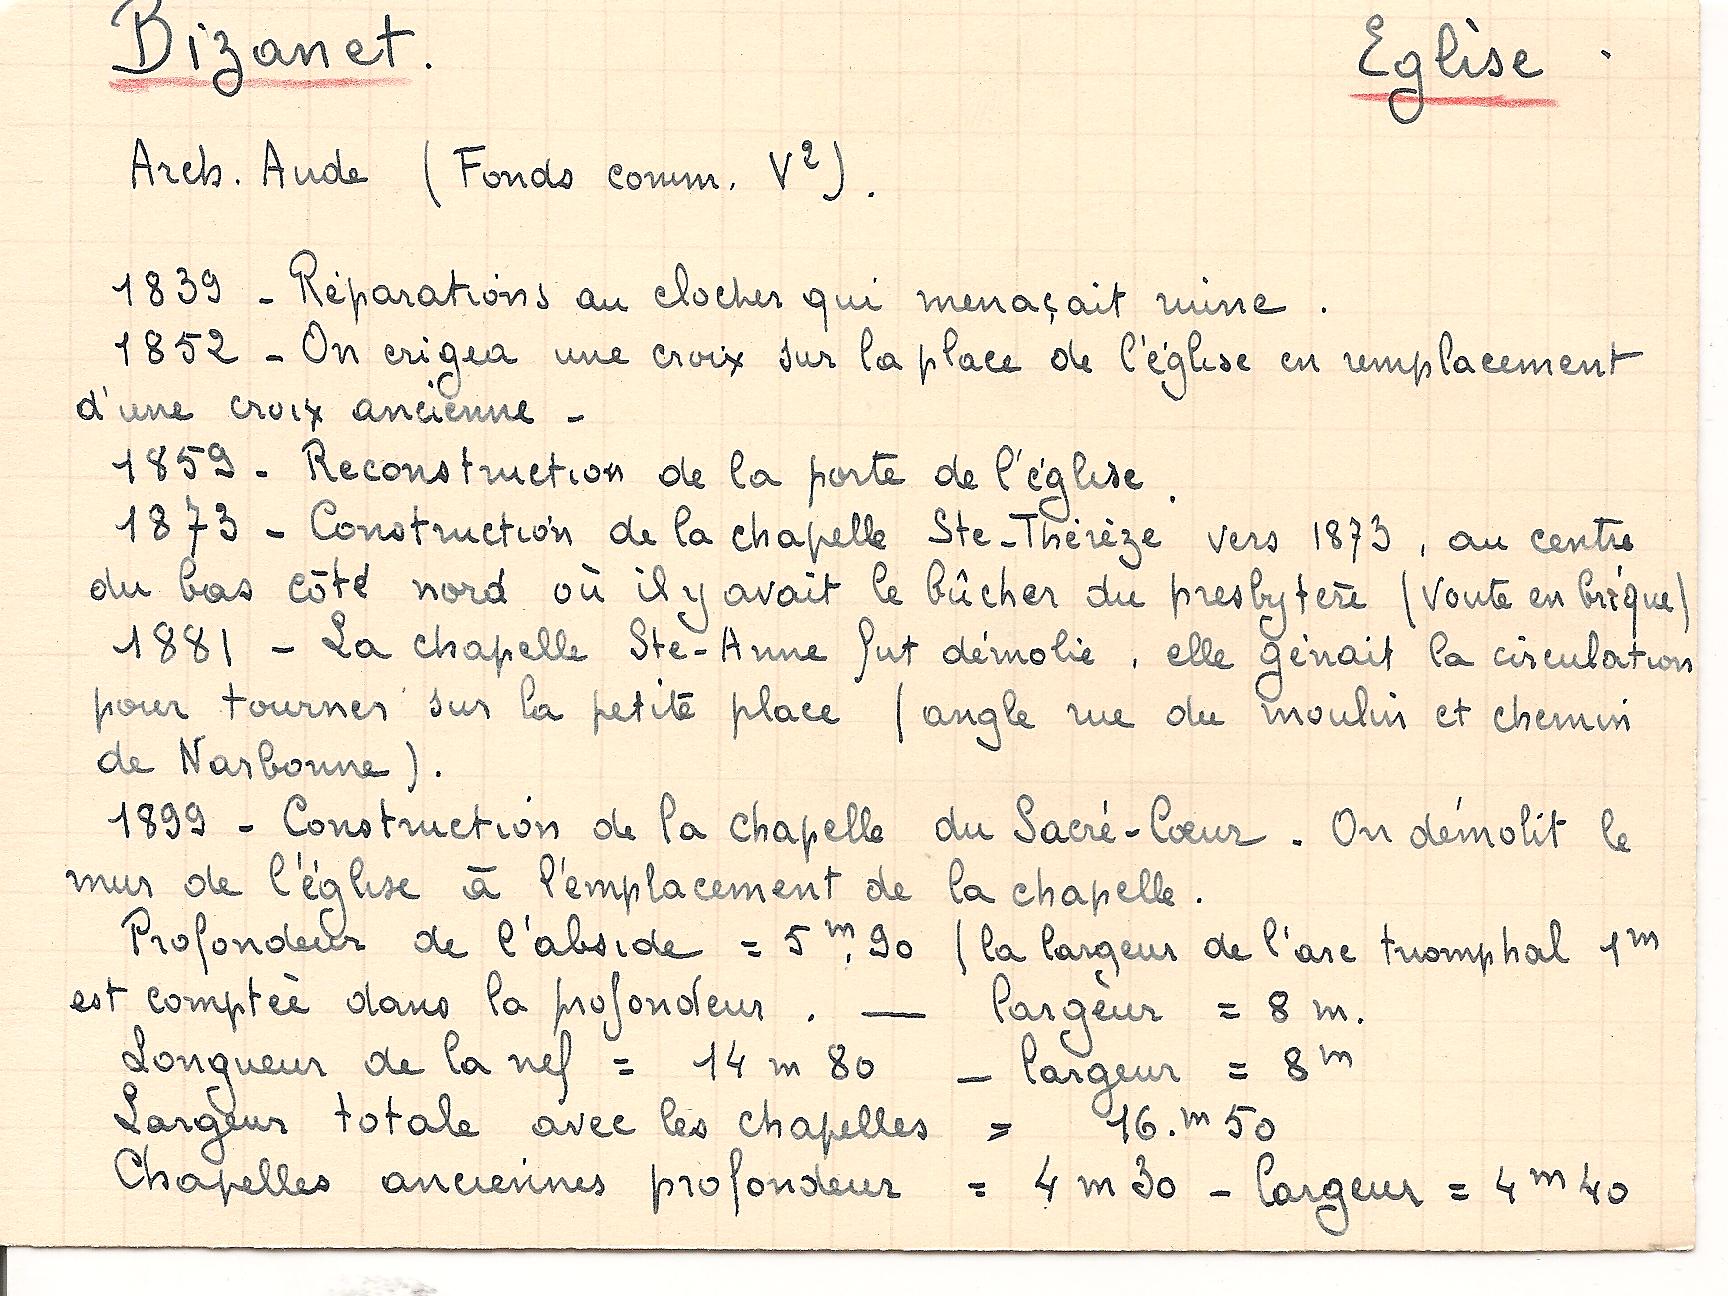 Bizanet. Eglise
Arch. Aude (Fonds comm. V²).
1839 - Réparations au clocher qui menaçait ruine.
1852 - On erigea une croix sur la place de l'église en remplacement
d'une croix ancienne -
1859 - Reconstruction de la porte de l'église.
1873 - Construction de la chapelle Ste-Thérèze vers 1873, au centre
du bas côté nord où il y avait le bûcher du presbytère (voute en brique)
1881 - La chapelle Ste-Anne fut démolie, elle gênait la circulation
pour tourner sur la petite place (angle rue du moulin et chemin
de Narbonne).
1899 - Construction de la chapelle du Sacré-Cœur. On démolit le
mur de l'église à l'emplacement de la chapelle.
Profondeur de l'abside = 5ᵐ,90 (la largeur de l'arc triomphal 1ᵐ
est comptée dans la profondeur. — largeur = 8 m.
Longueur de la nef = 14 m 80 - largeur = 8ᵐ
Largeur totale avec les chapelles = 16.ᵐ50
Chapelles anciennes profondeur = 4 m 30 - largeur = 4ᵐ40